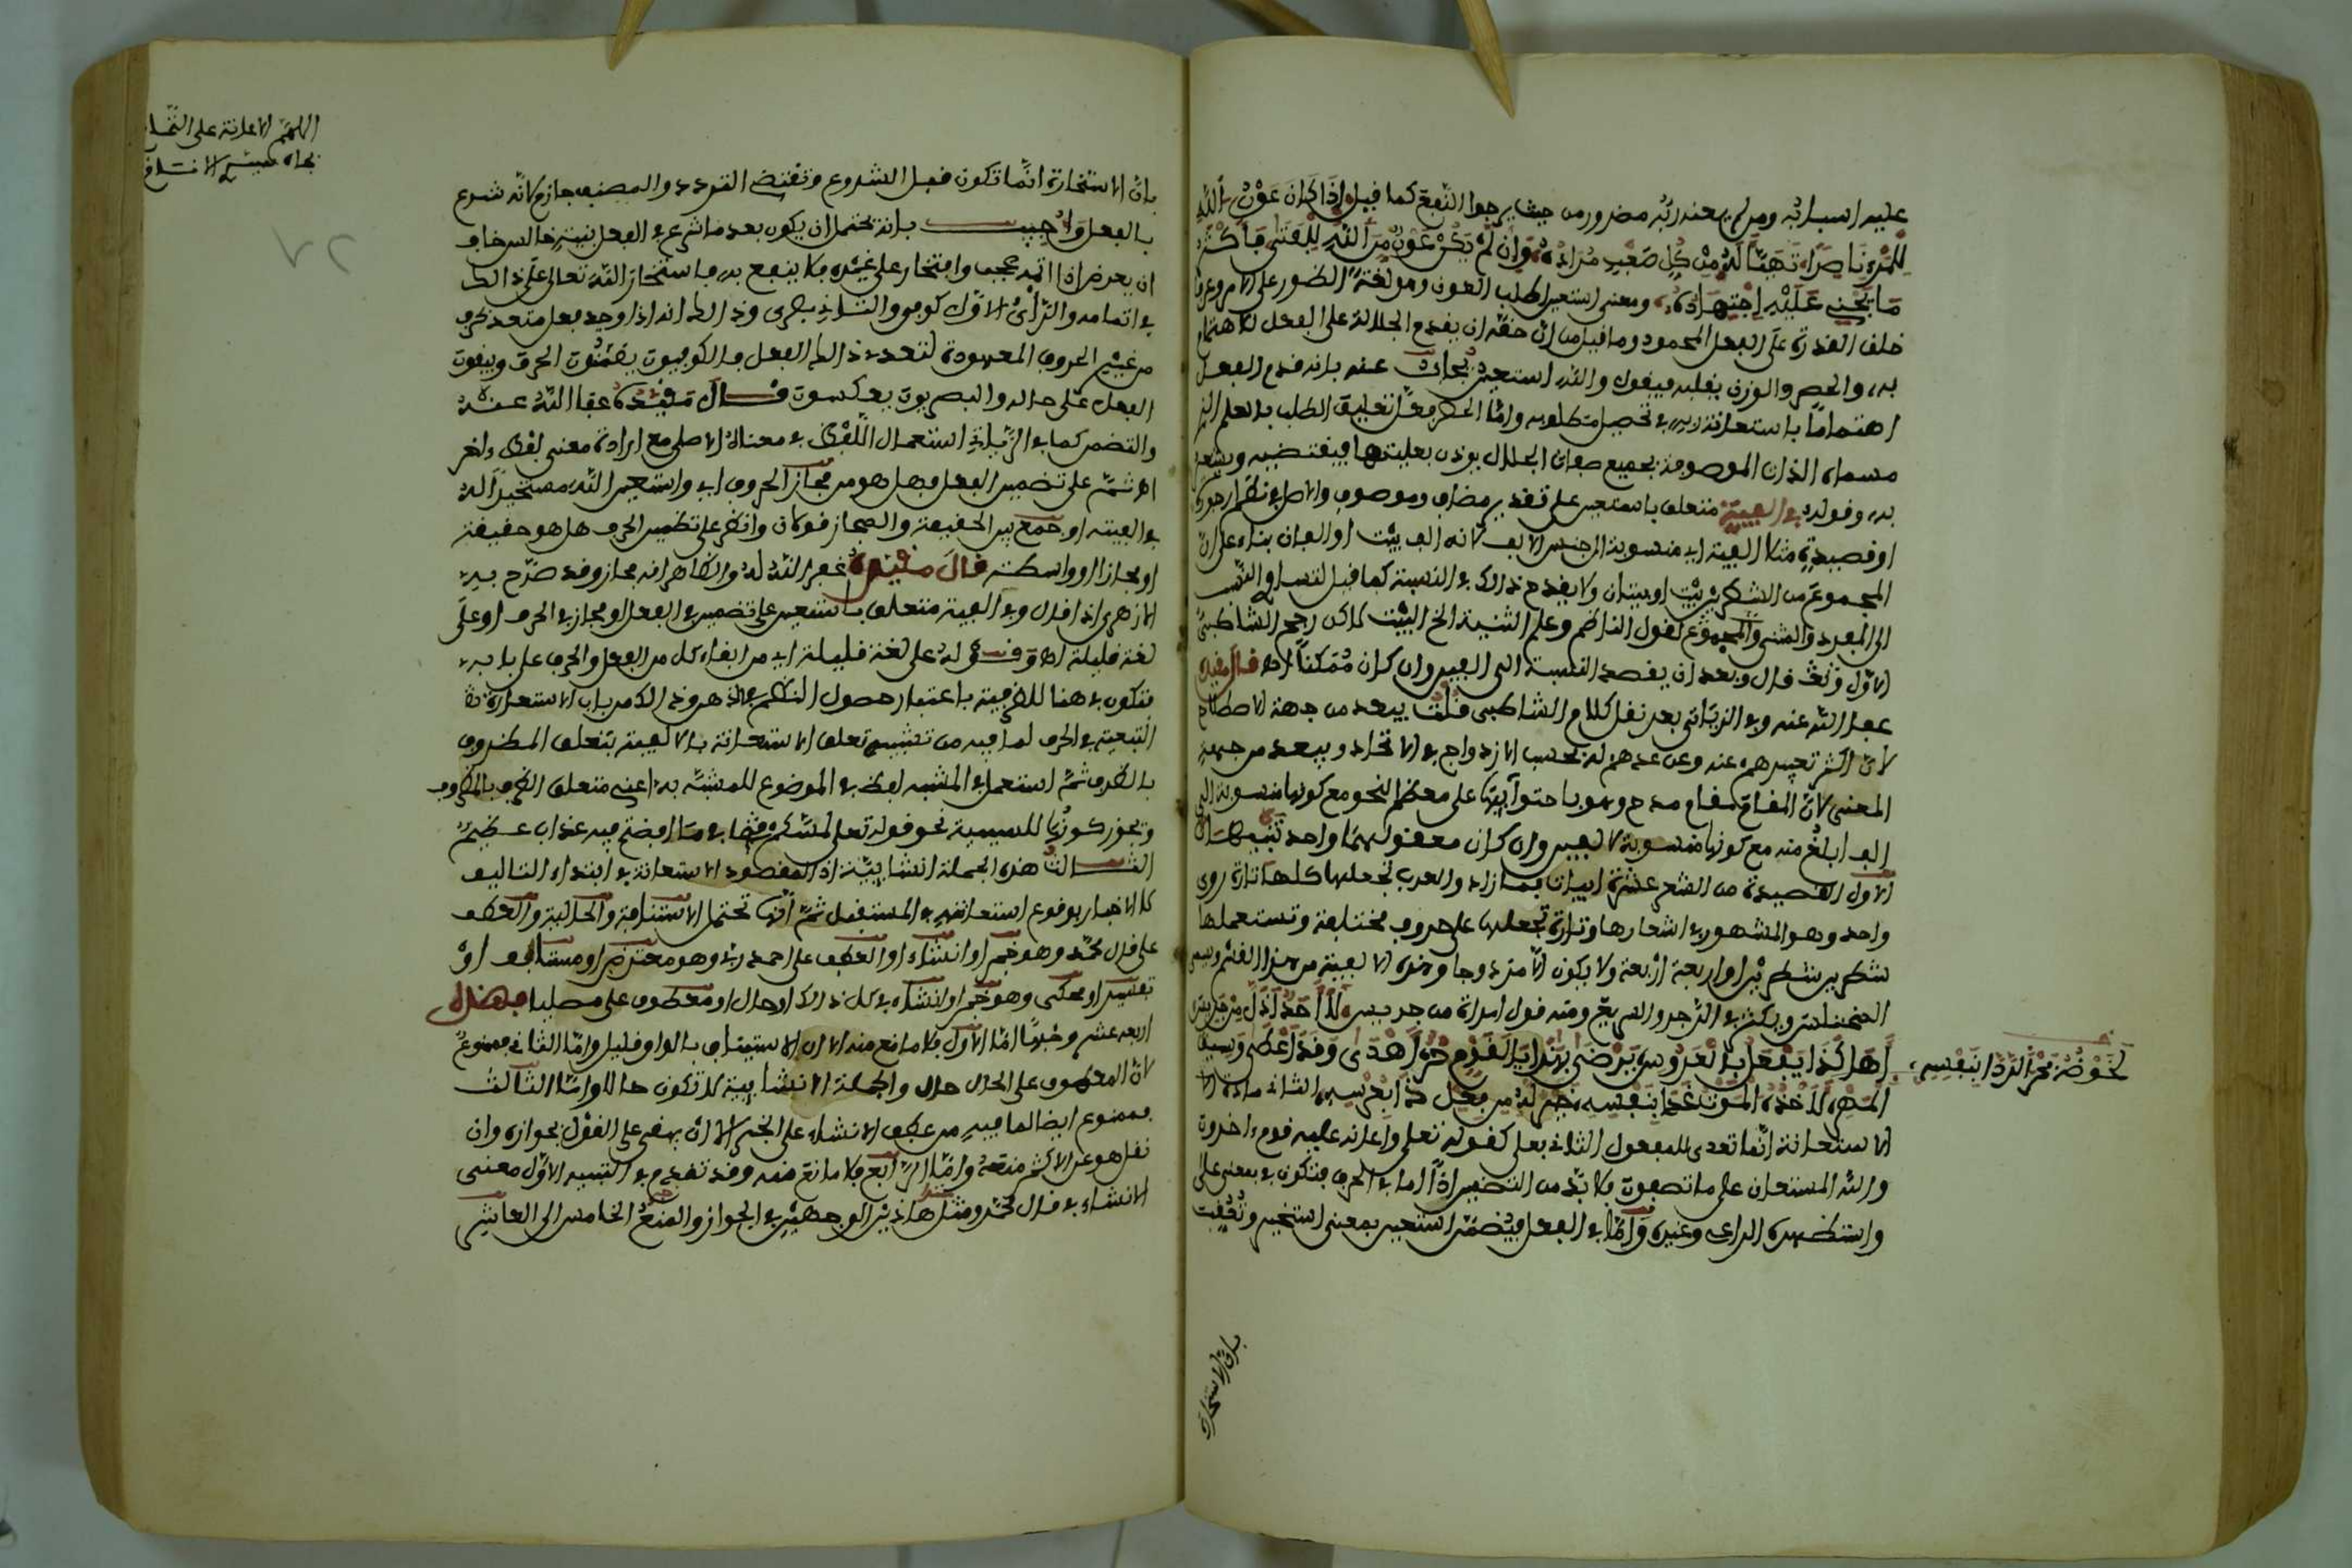 عليه اسبابه ومن لم يعنه ربه مضرور من حيث يرجوا النفع كما قيل إذا كان عون الله
للمرء ناصرا تهيأ له من كل صعب مراده وإن لم يكن عون من الله للفتى فأكثر
ما يجني عليه اجتهاده ومعنى استعين اطلب العون وهو لغة الظهور على الأمر وعرفا
خلق القدرة على الفعل المحمود وما قيل من أن حقه أن يقدم الجلالة على الفعل للاهتمام
به والحصر والوزن يقبله فيقول والله استعين يجاب عنه بأنه قدم الفعل
اهتماما باستعانة ربه في تحصيل مطلوبه وأما الحصر فمن تعليق الطلب بالعلم الذي
مسماه الذات الموصوفة بجميع صفات الجلال يوذن بعليتها فيقتضيه ويشعر
به وقوله في ألفية متعلق باستعين على تقدير مضاف وموصوف والأصل في نظم ارجوزة
او قصيدة مثلا ألفية أي منسوبة إلى جنس الألف لأنه ألف بيت او ألفان بناء على أن
المجموع من الشطرين بيت او بيتان ولا يقدح ذلك في النسبة كما قيل لتساوي النسب
الى المفرد والمثنى والمجموع لقول الناظم وعلم التثنية الخ البيت لكن رجح الشاطبي
الأول ونصه قال وبعد أن يقصد النسبة الى ألفين وإن كان ممكنا اهـ قال مقيده
عفا الله عنه وفي الزياتي بعد نقل كلام الشاطبي قلت يبعد من جهة الاصطلاح
لأن أكثر تعبيرهم عنه وعن عدهم له بحسب الازدواج في الاتحاد ويبعد من جهة
المعنى لأن المقام مقام مدح وهو باحتوائها على معظم النحو مع كونها منسوبة الى
ألف ابلغ منه مع كونها منسوبة لألفين وإن كان معقولهما واحد تنبيهان
الأول القصيدة من الشعر عشرة ابيات فما زاد والعرب تجعلها كلها تارة روي
واحد وهو المشهور في اشعارها وتارة تجعلها على حروف مختلفة وتستعملها
شطرين شطرين او اربعة أربعة ولا يكون إلا مزدوجا وهذه الألفية من هذا القسم
ويكثر في الرجز والسريع ومنه قول امراة من جديس لا أحد أذل من جديس
أهكذا يفعل بالعروس يرضى بهذا يا لقوم حر أهدى وقد أعطى وسيق
المهر لأخذة الموت غدا بنفسه خير له من فعل ذا بعرسه الثاني مادة
الاستعانة إنما تعدى للمفعول الثاني بعلى كقوله تعالى وأعانه عليه قوم ءاخرون
والله المستعان على ما تصفون فلا بد من التضمين إذا إما في الحرف فتكون في بمعنى على
واستظهره الراعي وغيره وإما في الفعل فيضمن استعين بمعنى استخير وتعقبت
لخوضه بحر الردا بنفسه
بأن الاستخارة
بأن الاستخارة إنما تكون قبل الشروع وتقتضي التردد والمصنف جازم لأنه شرع
بالفعل وأجيب بأنه يحتمل أن يكون بعد ما شرع في الفعل بنية خالصة خاف
أن يعرض إذا أتمه عجب وافتخار على غيره فلا ينفع به فاستخار الله تعالى على ذلك
في اتمامه والرأي الأول كوفي والثاني بصري وذلك انه اذا وجد فعل متعد بحرف
من غير الحروف المعهودة لتعدية ذلك الفعل فالكوفيون يضمنون الحرف ويبقون
الفعل على حاله والبصريون يعكسون قال مقيده عفا الله عنه
والتضمين كما في الزياتي استعمال اللفظ في معناه الأصلي مع ارادة معنى لفظ ءاخر
اهـ ثم على تضمين الفعل فهل هو من مجاز الحذف اي واستعين الله مستخيرا له
في ألفيته او جمع بين الحقيقة والمجاز قولان وانظر على تضمين الحرف هل هو حقيقة
او مجاز او واسطة قال مقيده غفر الله له والظاهر انه مجاز وقد صرح به
الأزهري اذ قال وفي ألفية متعلق باستعين على تضمين في الفعل او مجاز في الحرف او على
لغة قليلة اهـ وقوله على لغة قليلة اي من ابقاء كل من الفعل والحرف على بابه
فتكون في هنا للظرفية باعتبار حصول النظم وذلك من باب الاستعارة
التبعية في الحرف لما فيه من تشبيه تعلق الاستعانة بالألفية بتعلق المظروف
بالظرف ثم استعمل في المشبه لفظ في الموضوع للمشبه به اعني متعلق الظرف بالمظروف
ويجوز كونها للسببية نحو قوله تعالى لمسكم فيما أفضتم فيه عذاب عظيم
الثالث هذه الجملة انشائية اذ المقصود الاستعانة في ابتداء التاليف
لا الاخبار بوقوع استعانته في المستقبل ثم انها تحتمل الاستئناف والحالية والعطف
على قال محمد وهو خبر او انشاء او العطف على احمد ربي وهو معترض او مستانف او
تفسير او محكي وهو خبر او انشاء في كل ذلك او حال او معطوف على مصليا فهذه
اربعة عشر وجها أما الأول فلا مانع منه إلا أن الاستيناف بالواو قليل وأما الثاني فممنوع
لأن المعطوف على الحال حال والجملة الانشائية لا تكون حالا وأما الثالث
فممنوع ايضا لما فيه من عطف الانشاء على الخبر إلا أن يبنى على القول بجوازه وان
نقل هو عن الأكثر منعه وأما الرابع فلا مانع منه وقد تقدم في التنبيه الأول معنى
الانشاء في قال محمد ومثل هاذين الوجهين في الجواز والمنع الخامس الى العاشر
اللهم الاعانة على التمام